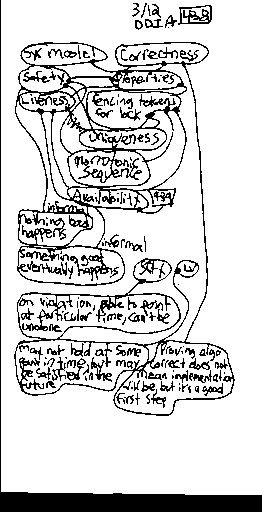 3/12
DDIA 423
Sys model Correctness
Safety Properties
Liveness fencing tokens
for lock
Uniqueness
Monotonic
Sequence
Availability 424
informal
nothing bad
happens
informal
something good
eventually happens
Safety
on violation, able to point
at particular time, can't be
undone
may not hold at some
point in time, but may
be satisfied in the
future
Proving algo
correct does not
mean implementation
will be, but it's a good
first step